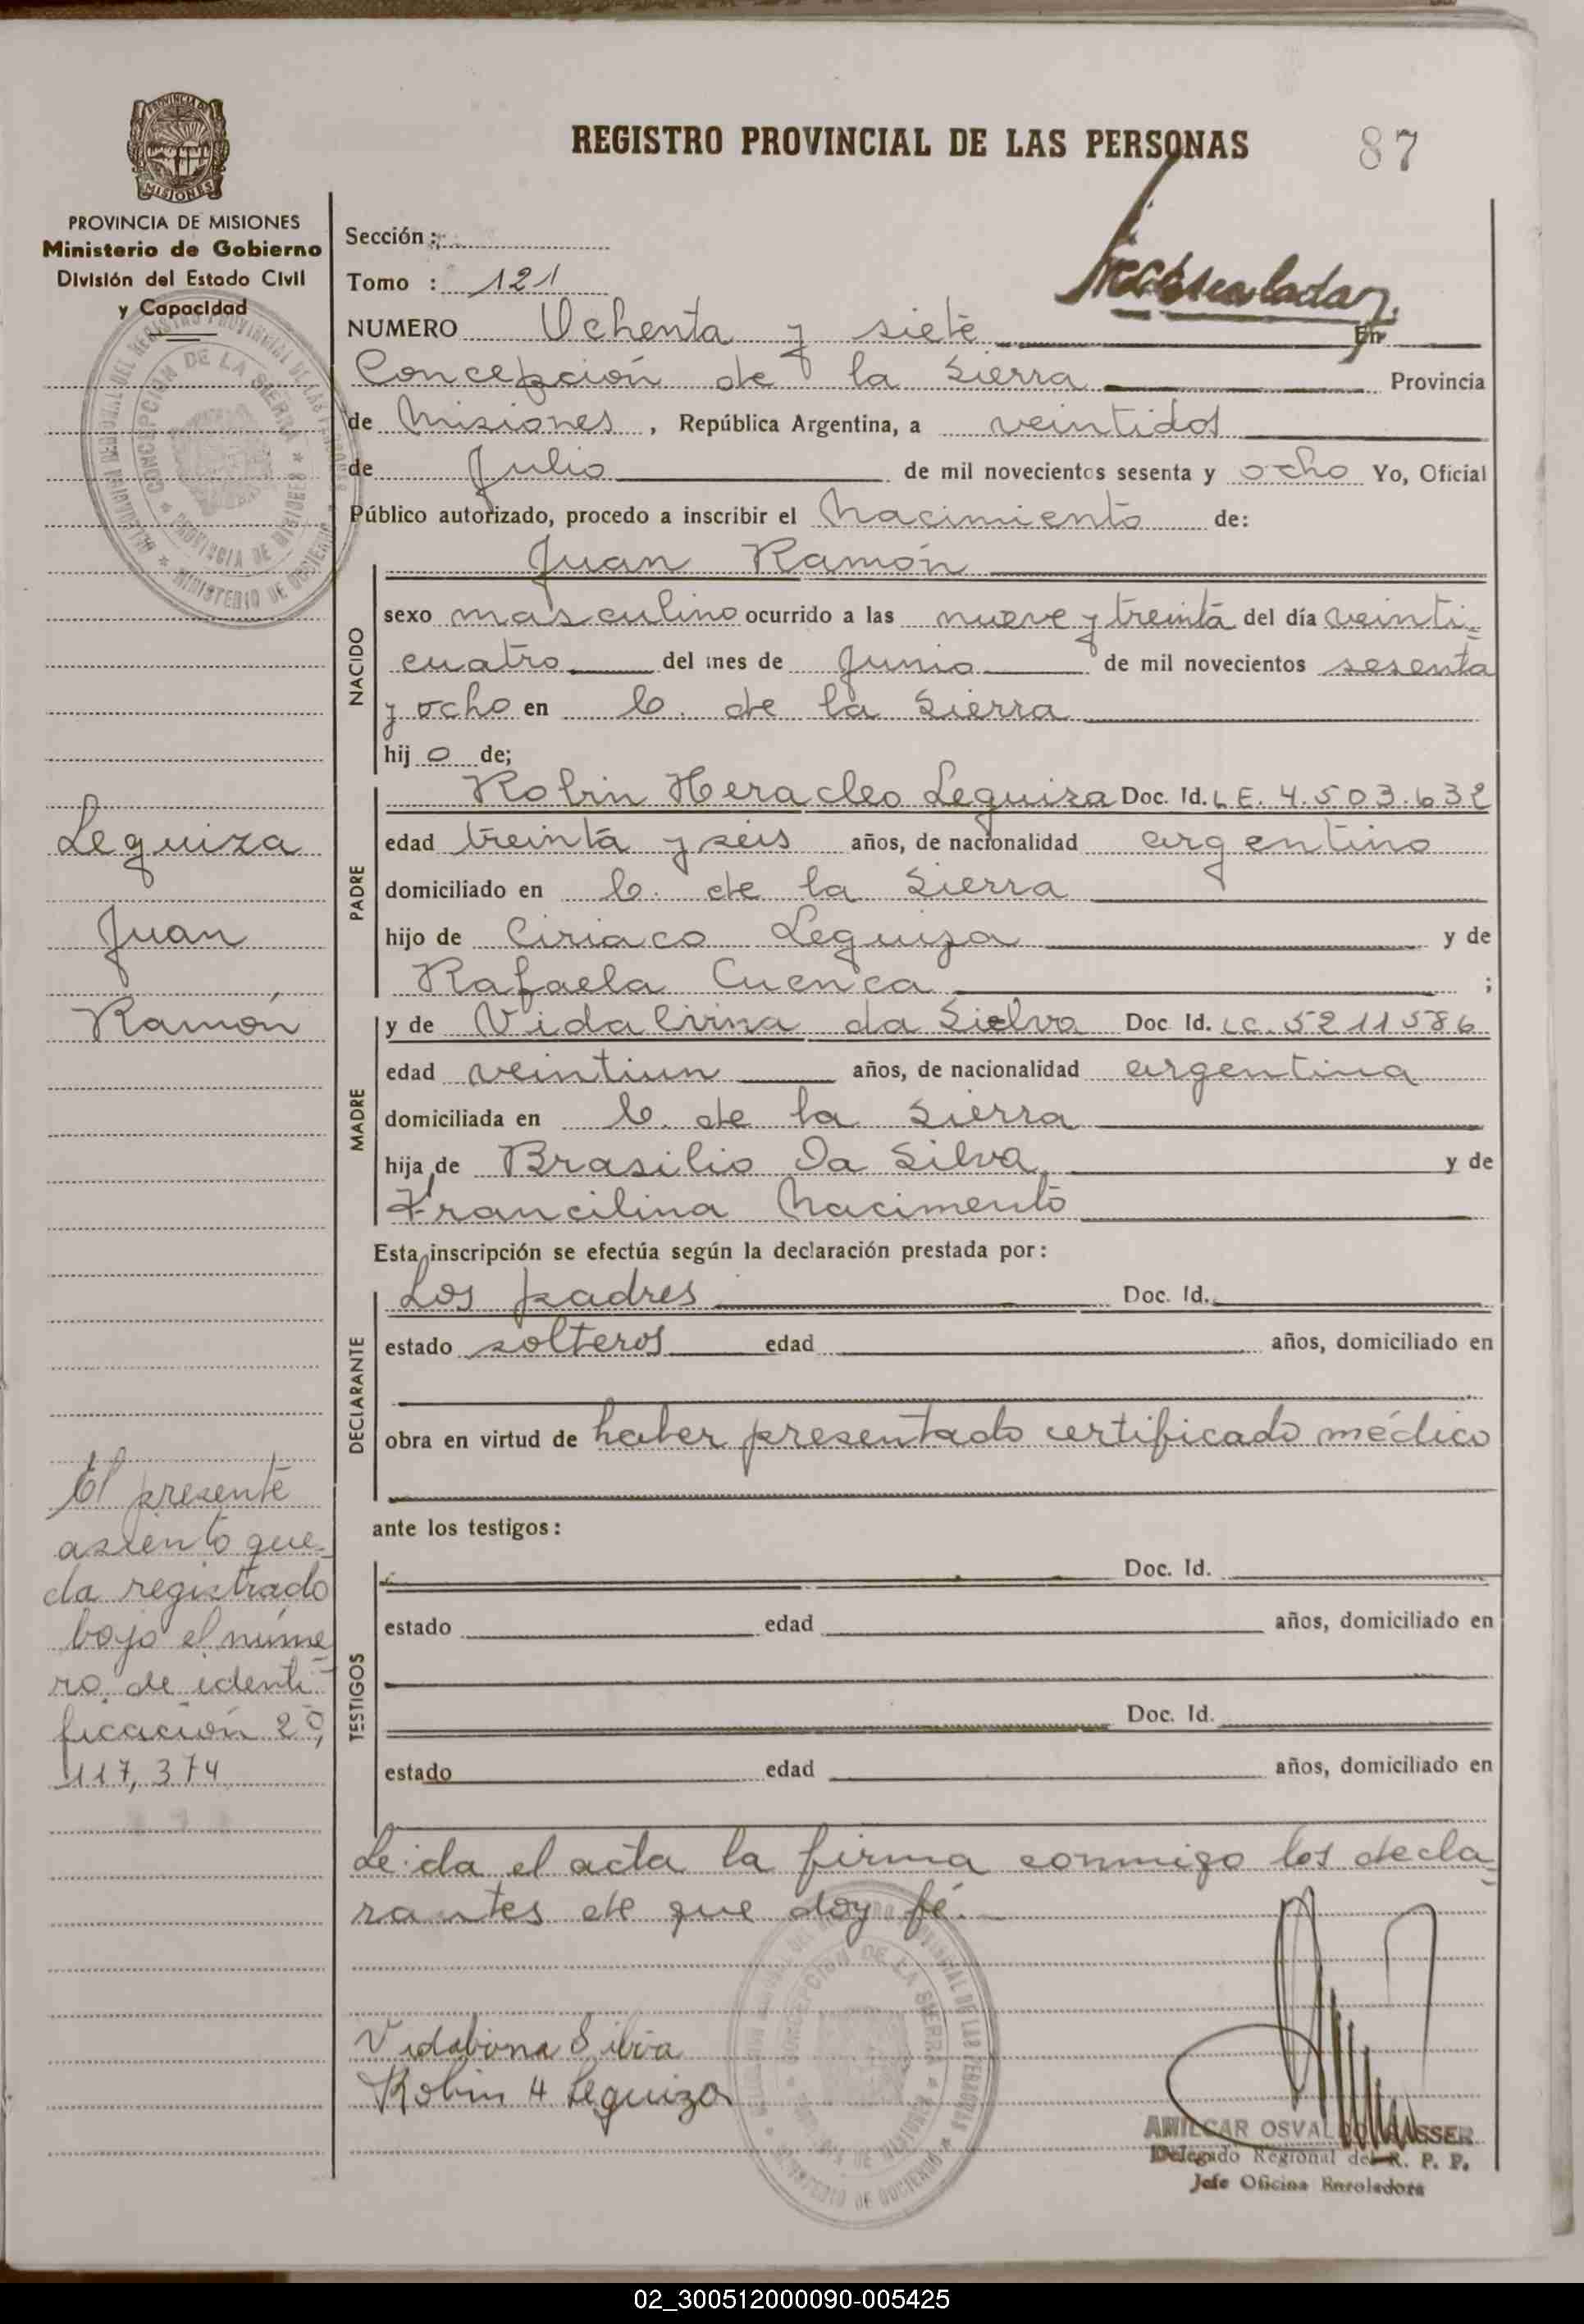 REGISTRO PROVINCIAL DE LAS PERSONAS
87
MISIONES
PROVINCIA DE MISIONES
Ministerio de Gobierno
División del Estado Civil
y Capacidad
Sección :
Tomo : 121
NUMERO Ochenta y siete En
Concepción de la Sierra Provincia
de Misiones, República Argentina, a veintidos
de Julio de mil novecientos sesenta y ocho Yo, Oficial
Público autorizado, procedo a inscribir el Nacimiento de:
Juan Ramón
NACIDO
sexo masculino ocurrido a las nueve y treinta del día veinti-
cuatro del mes de Junio de mil novecientos sesenta
y ocho en C. de la Sierra
hij o de;
PADRE
Robin Heracleo Leguiza Doc. Id. L E. 4.503.632
edad treinta y seis años, de nacionalidad argentino
domiciliado en C. de la Sierra
hijo de Ciriaco Leguiza y de
Rafaela Cuenca ;
MADRE
y de Vidalvina da Sielva Doc Id. LC. 5211586
edad veintiun años, de nacionalidad argentina
domiciliada en C. de la Sierra
hija de Brasilio Da Silva y de
Francilina Nacimento
Esta inscripción se efectúa según la declaración prestada por:
DECLARANTE
Los padres Doc. Id.
estado solteros edad años, domiciliado en
obra en virtud de haber presentado certificado médico
ante los testigos:
TESTIGOS
Doc. Id.
estado edad años, domiciliado en
Doc. Id.
estado edad años, domiciliado en
Leida el acta la firma conmigo los decla-
rantes de que doy fé.
Leguiza
Juan
Ramón
El presente
asiento que-
da registrado
bajo el núme
ro de identi-
ficación 20,
117,374
Robin H Leguiza
AMILCAR OSVALDO
Delegado Regional del R. P. P.
Jefe Oficina Enroladora
02_300512000090-005425